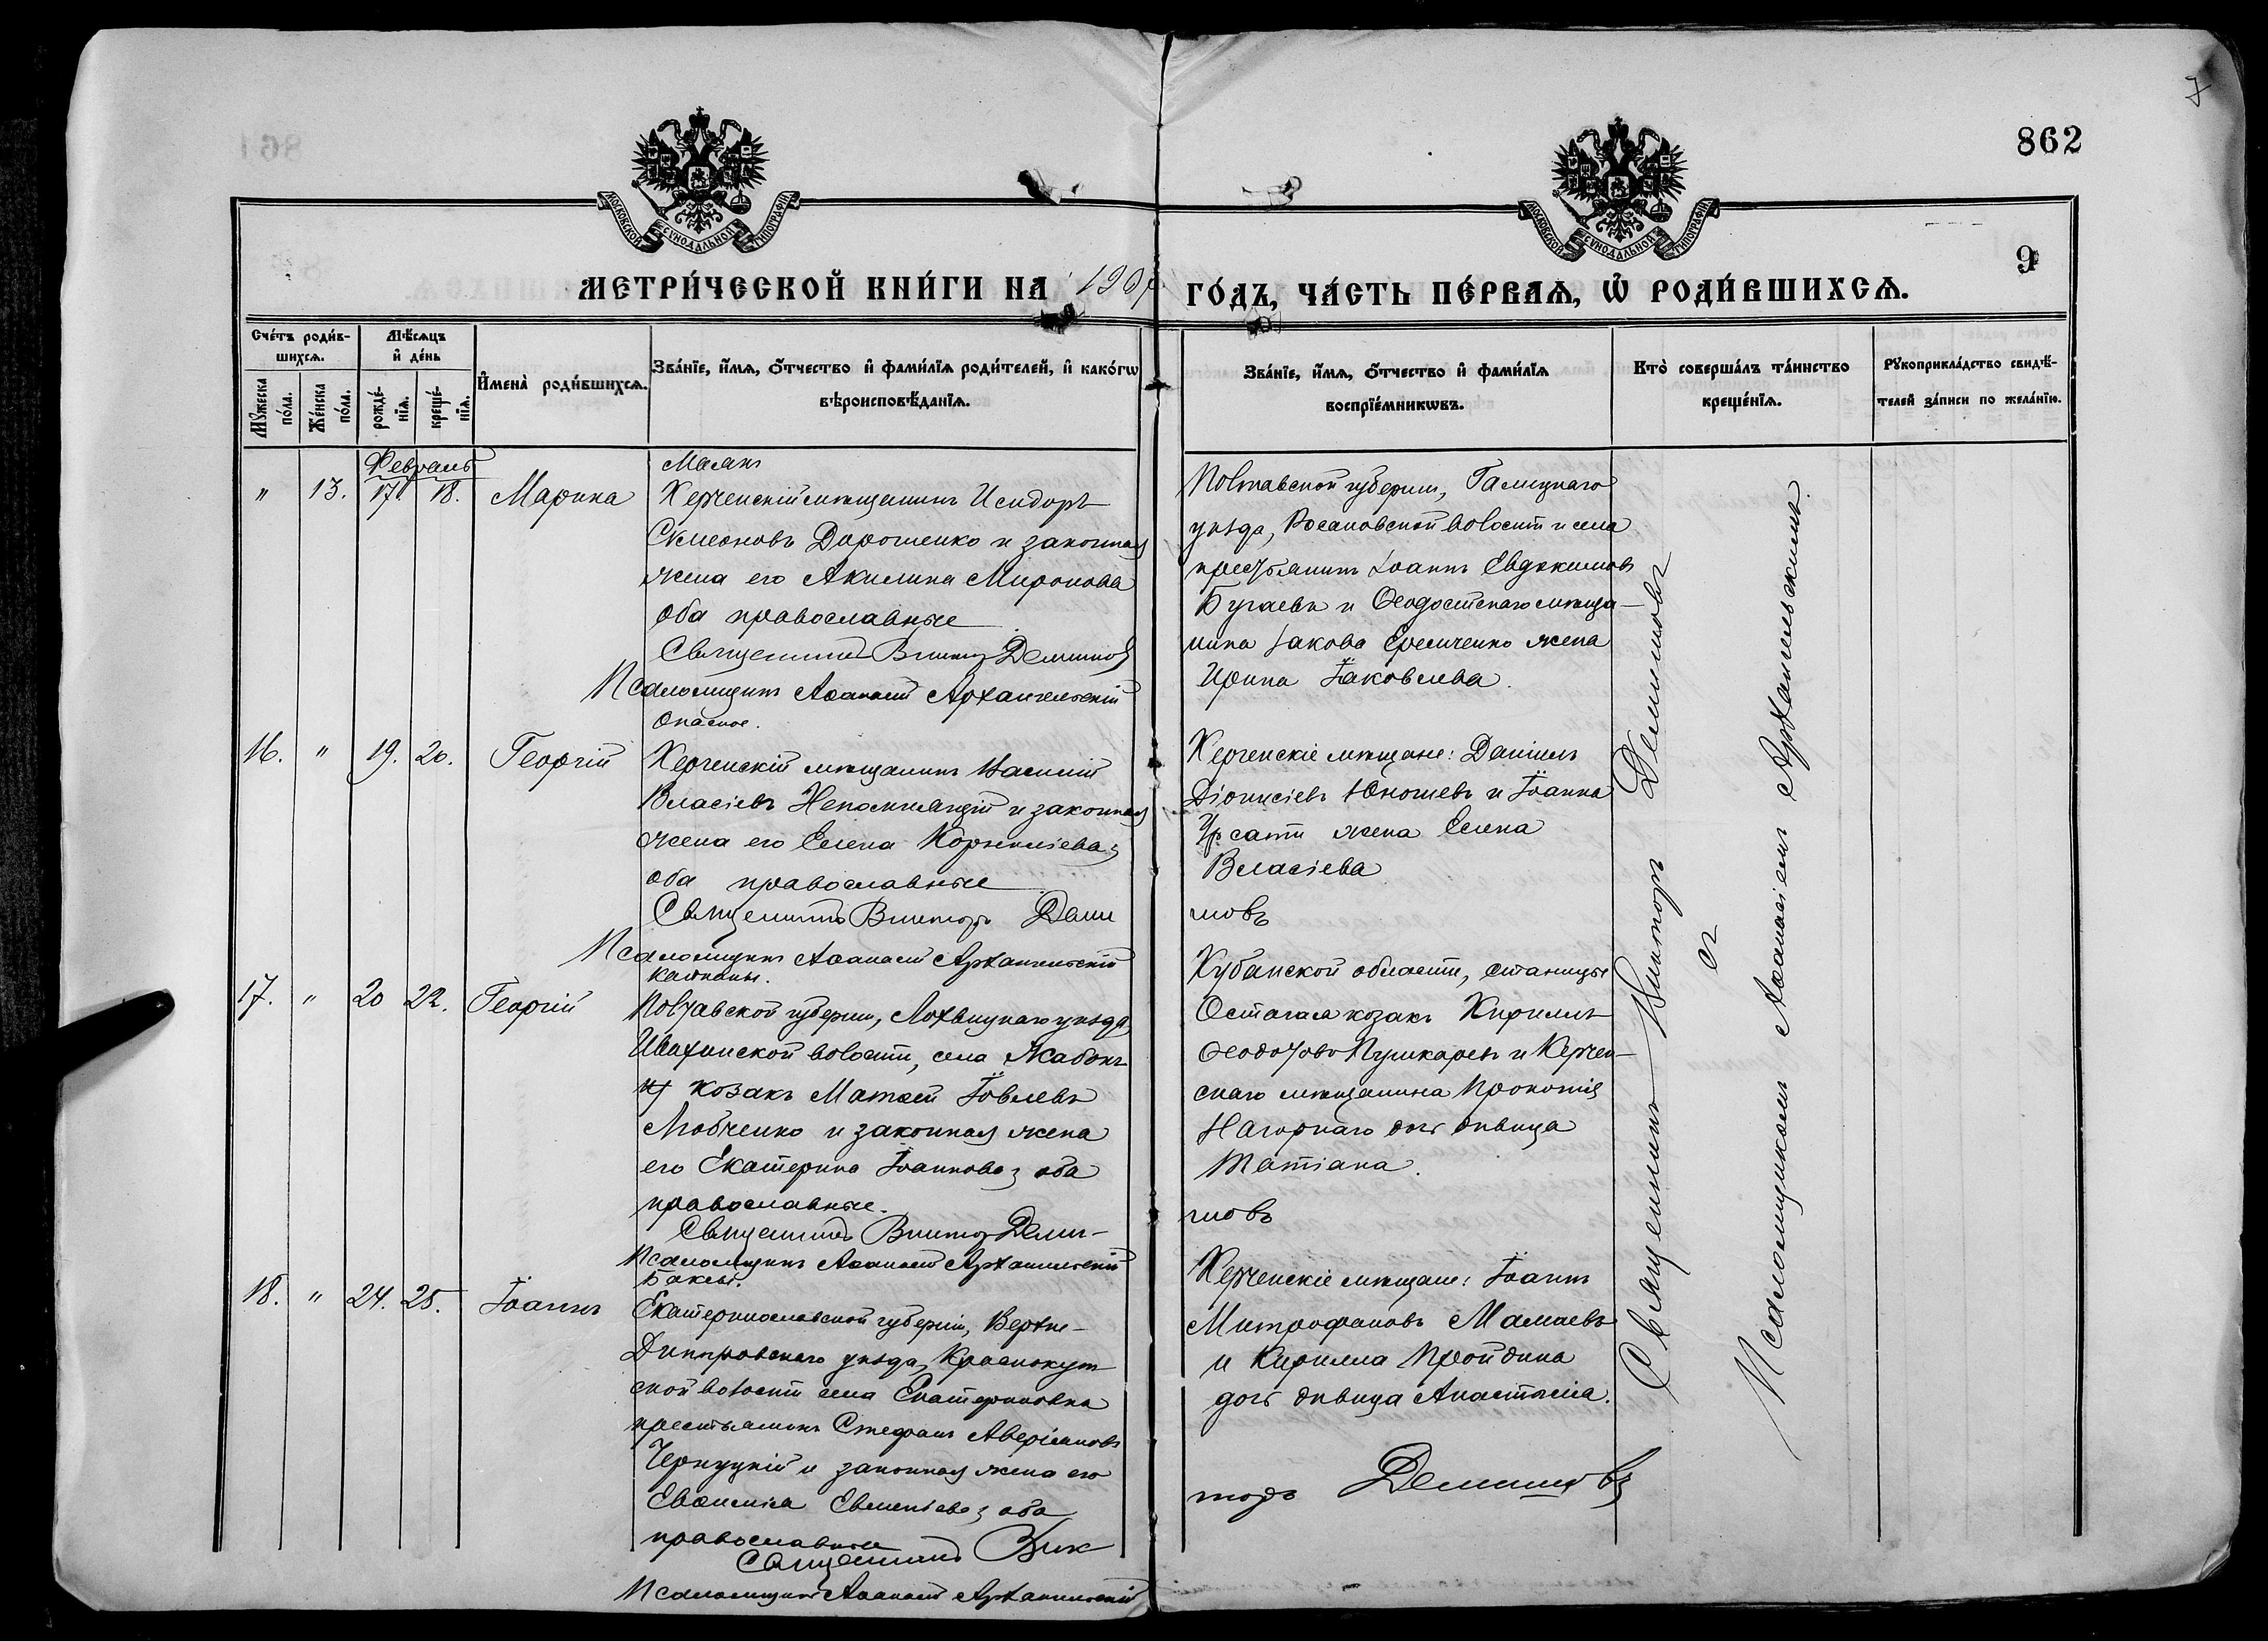 862
9
МОСКОВСКОЙ СѴНОДАЛЬНОЙ ТИПОГРАФІИ
МОСКОВСКОЙ СѴНОДАЛЬНОЙ ТИПОГРАФІИ
МЕТРИ́ЧЕСКОЙ КНИ́ГИ НА 190 ГО́ДЪ, ЧА́СТЬ ПЕ́РВАѦ, Ѡ҆ РОДИ́ВШИХСѦ.
Сче́тъ роди́в-
шихсѧ.
Мꙋжеска по́ла.
Же́нска по́ла.
Мѣ́сѧцъ
и҆ де́нь
рожде́-
нїѧ.
креще́-
нїѧ.
И҆мена̀ роди́вшихсѧ.
Зва́нїе, и҆́мѧ, ѻ҆́тчество и҆ фами́лїѧ роди́телей, и҆ како́гѡ
вѣроисповѣ́данїѧ.
Зва́нїе, и҆́мѧ, ѻ҆́тчество и҆ фами́лїѧ
воспрїе́мникѡвъ.
Кто̀ соверша́лъ та́инство
креще́нїѧ.
Рꙋкоприкла́дство свидѣ́-
телей за́писи по жела́нїю.
Февраль
" 13. 17. 18. Марина
Керченскій мѣщанинъ Исидоръ
Симеоновъ Дорошенко и законная
жена его Акилина Миронова
оба православные
Священникъ Викторъ Демишовъ
Псаломщикъ Аѳанасій Архангельскій
Полтавской губерніи,
уѣзда, волости и села
крестьянинъ Іоаннъ Евдокимовъ
Бугаевъ и Ѳеодосійскаго мѣща-
нина Іакова Еремченко жена
Ирина Іаковлева.
Опасное.
16. " 19. 20. Георгій
Керченскій мѣщанинъ Василій
Власіевъ Непомнящій и законная
жена его Елена Корниліева;
оба православные
Священникъ Викторъ Деми
Псаломщикъ Аѳанасій Архангельскій
Керченскіе мѣщане: Даніилъ
Діонисіевъ Юношевъ и Іоанна
жена Елена
Власіева
шовъ
17. " 20 22. Георгій
Полтавской губерніи, Лохвицкаго уѣзда
волости, села Жабокъ
козакъ Матѳей Іовлевъ
Любченко и законная жена
его Екатерина Іоаннова; оба
православные.
Священникъ Викторъ Деми-
Псаломщикъ Аѳанасій Архангельскій
Кубанской области, станицы
козакъ Кириллъ
Ѳеодотовъ Пушкаревъ и Керчен-
скаго мѣщанина Прокопія
Нагорнаго дочь дѣвица
Татіана.
шовъ
Баксы.
18. " 24. 25. Іоаннъ
Екатеринославской губерніи, Верхне-
Днѣпровскаго уѣзда, Краснокут-
ской волости села Екатериновка
крестьянинъ Стефанъ Аверіановъ
Чернуцкій и законная жена его
Евѳимія Евменіева; оба
православные
Священникъ Вик
Псаломщикъ Аѳанасій Архангельскій
Керченскіе мѣщане: Іоаннъ
Митрофановъ Мамаевъ
и Кирилла Пройдина
дочь дѣвица Анастасія.
торъ Демишовъ
Священникъ Викторъ Демишовъ
съ
Псаломщикомъ Аѳанасіемъ Архангельскимъ.